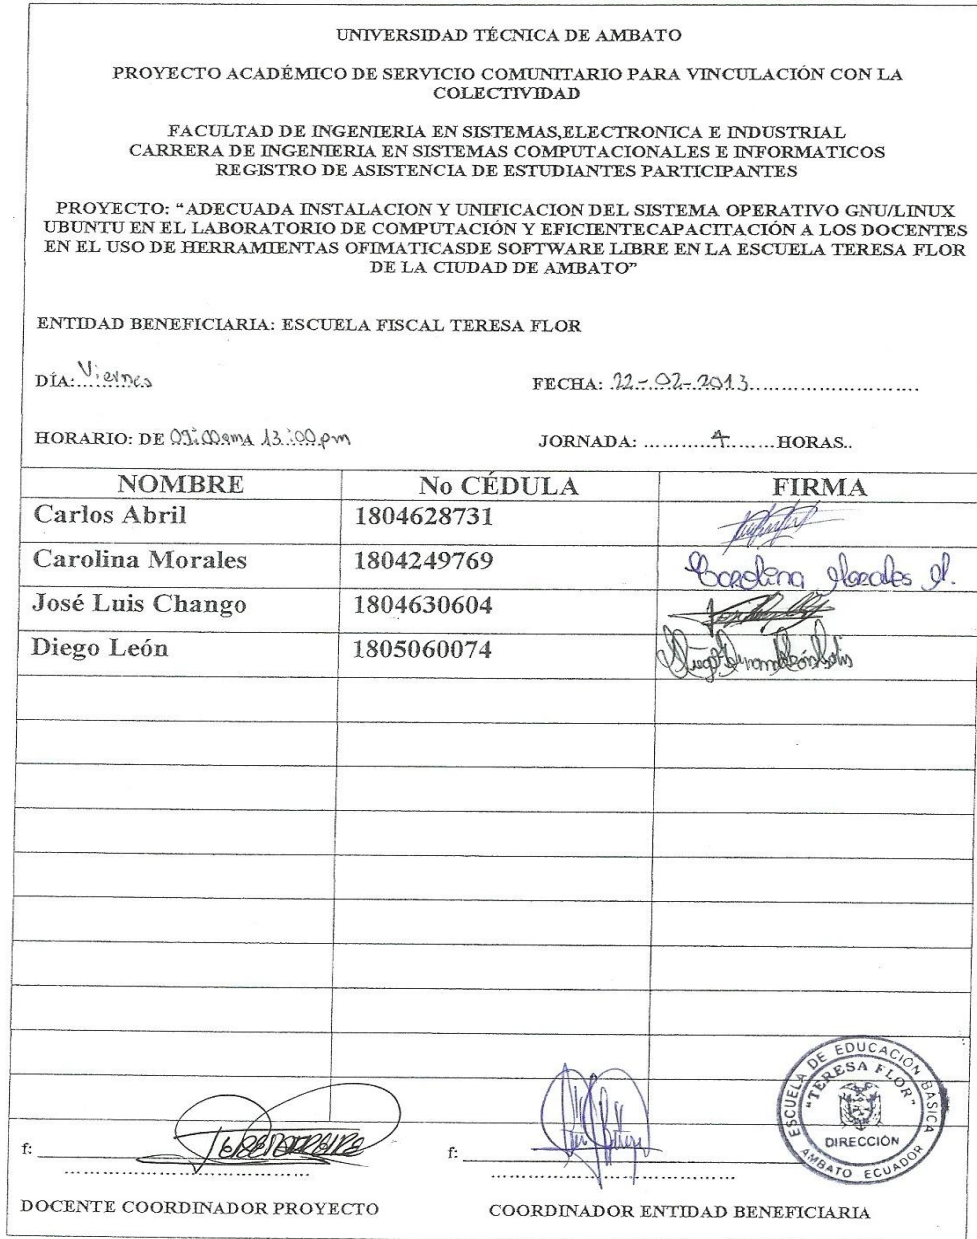 UNIVERSIDAD TÉCNICA DE AMBATO
PROYECTO ACADÉMICO DE SERVICIO COMUNITARIO PARA VINCULACIÓN CON LA
COLECTIVIDAD
FACULTAD DE INGENIERIA EN SISTEMAS,ELECTRONICA E INDUSTRIAL
CARRERA DE INGENIERIA EN SISTEMAS COMPUTACIONALES E INFORMATICOS
REGISTRO DE ASISTENCIA DE ESTUDIANTES PARTICIPANTES
PROYECTO: “ADECUADA INSTALACION Y UNIFICACION DEL SISTEMA OPERATIVO GNU/LINUX
UBUNTU EN EL LABORATORIO DE COMPUTACIÓN Y EFICIENTECAPACITACIÓN A LOS DOCENTES
EN EL USO DE HERRAMIENTAS OFIMATICASDE SOFTWARE LIBRE EN LA ESCUELA TERESA FLOR
DE LA CIUDAD DE AMBATO”
ENTIDAD BENEFICIARIA: ESCUELA FISCAL TERESA FLOR
DÍA: Viernes FECHA: 22-02-2013
HORARIO: DE 09:00am A 13:00pm JORNADA: 4 HORAS..
NOMBRE No CÉDULA FIRMA
Carlos Abril 1804628731
Carolina Morales 1804249769 Carolina Morales M.
José Luis Chango 1804630604
Diego León 1805060074
ESCUELA DE EDUCACIÓN BASICA
"TERESA FLOR"
DIRECCIÓN
AMBATO ECUADOR
f: f:
DOCENTE COORDINADOR PROYECTO COORDINADOR ENTIDAD BENEFICIARIA